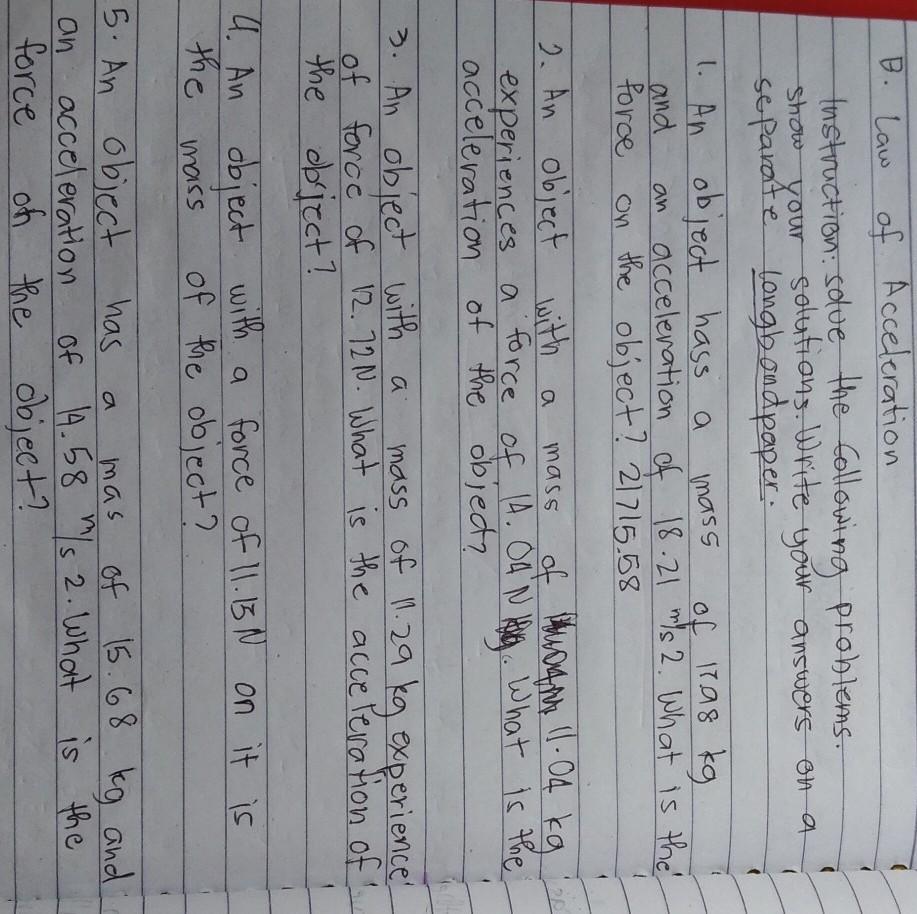 B. Law of Acceleration
Instruction: solve the following problems.
show your solutions. Write your answers on a
separate longbondpaper.
1. An object hass a mass of kg
and an acceleration of 18.21 m/s 2. What is the
force on the object? 21715.58
2. An object with a mass of 11.04 kg
experiences a force of 14.04 N. What is the
acceleration of the object?
3. An object with a mass of 11.29 kg experience
of force of 12.72N. What is the acceleration of
the object?
4. An object with a force of 11.13N on it is
the mass of the object?
5. An object has a mas of 15.68 kg and
an acceleration of 14.58 m/s 2. What is the
force of the object?